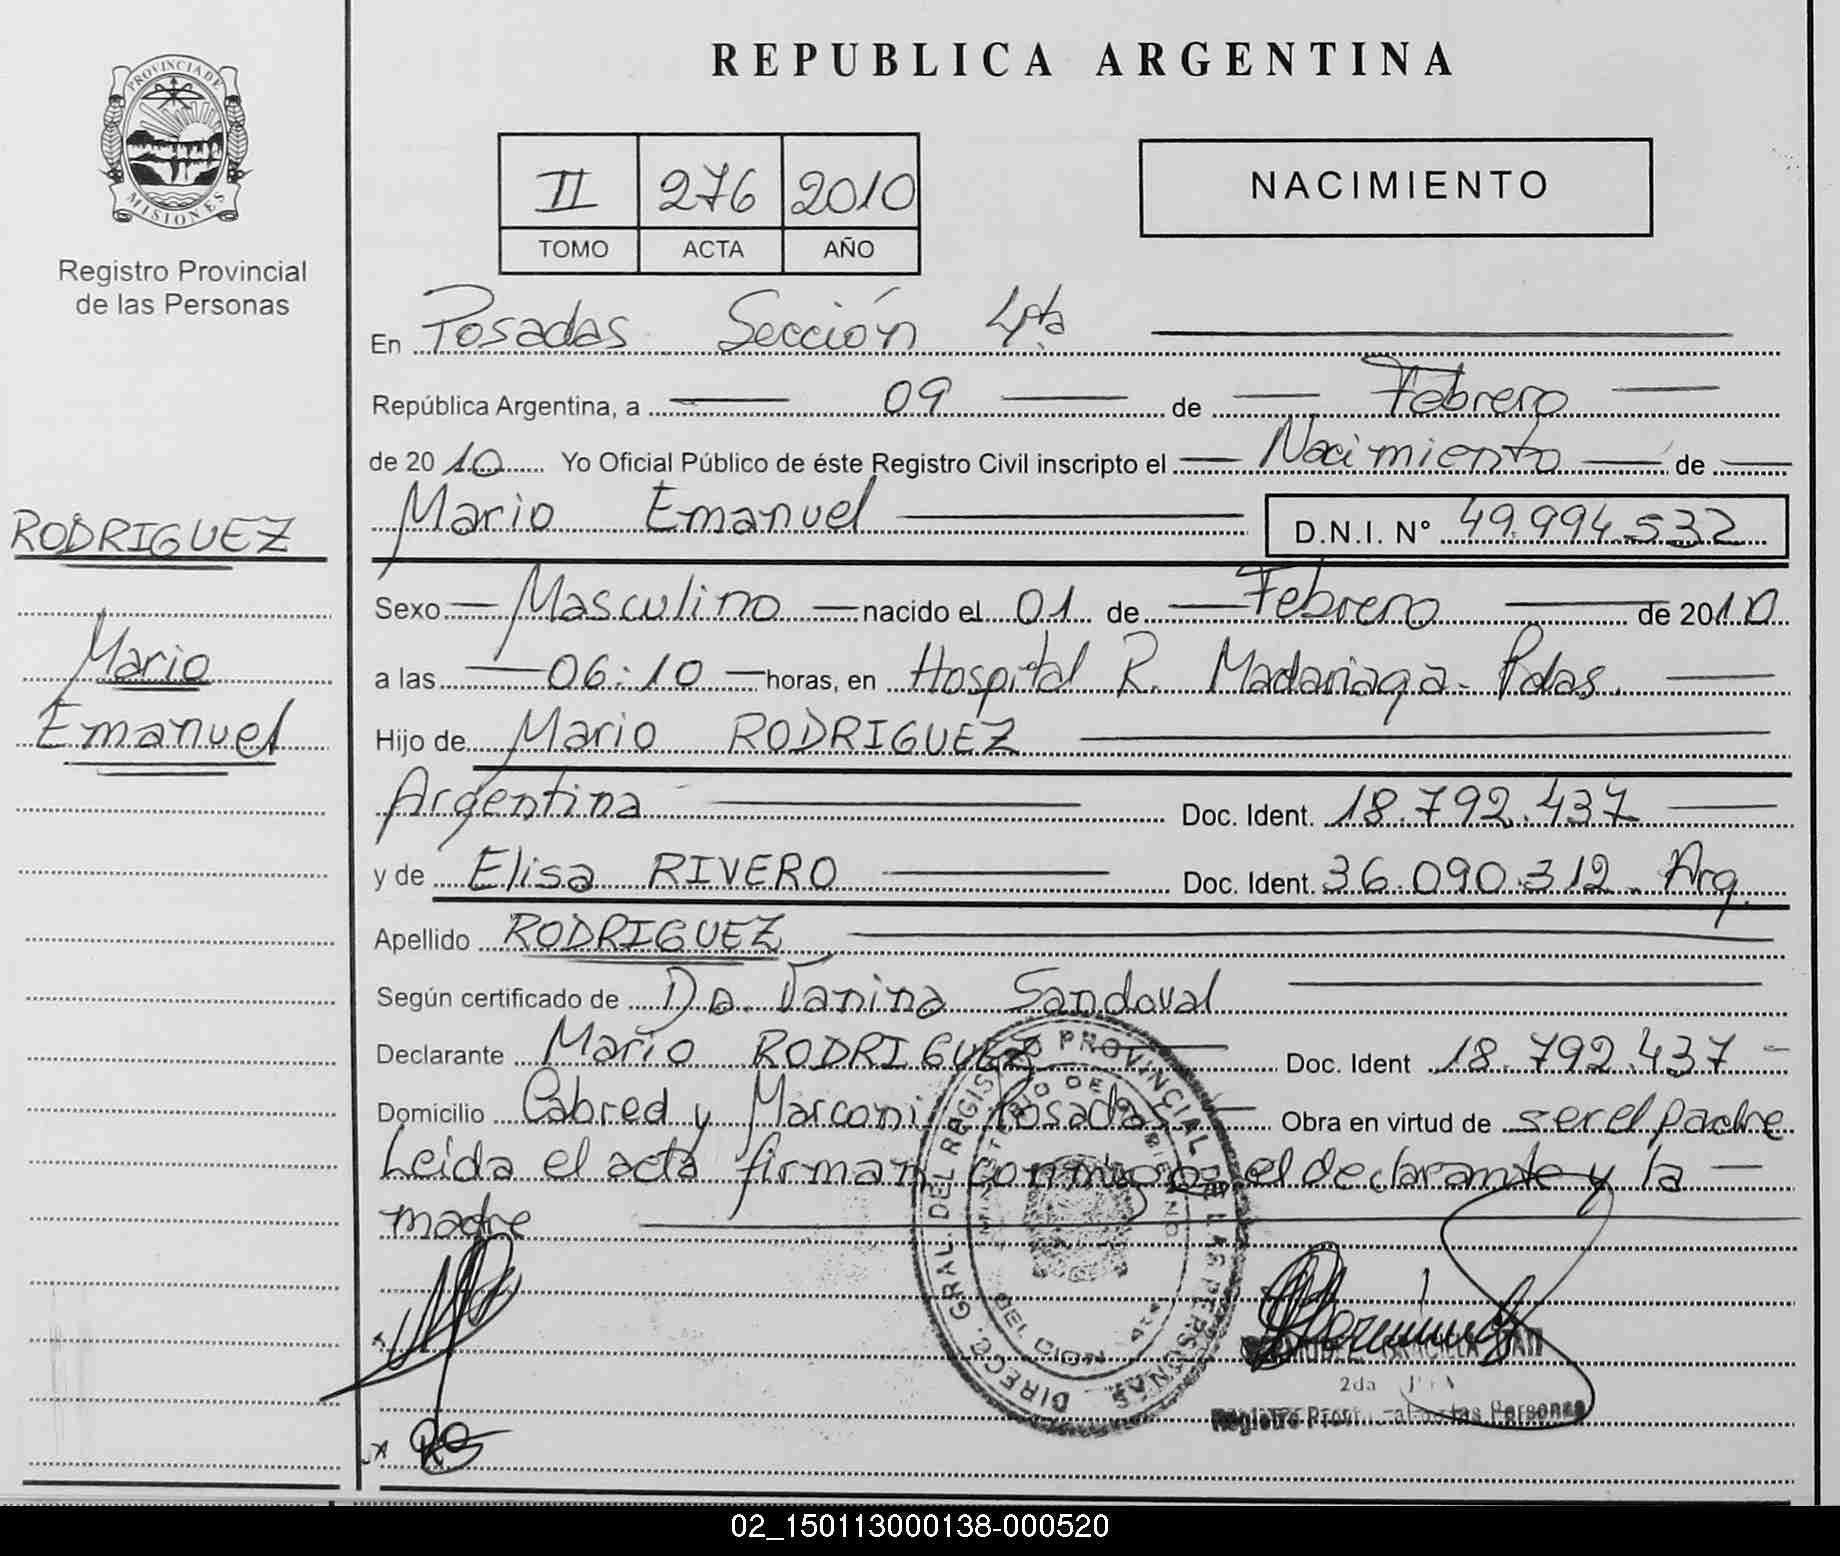 REPUBLICA ARGENTINA
PROVINCIA DE
MISIONES
Registro Provincial
de las Personas
II 276 2010
TOMO ACTA AÑO
NACIMIENTO
En Posadas Sección 4ta
República Argentina, a 09 de Febrero
de 2010 Yo Oficial Público de éste Registro Civil inscripto el Nacimiento de
Mario Emanuel D.N.I. Nº 49.994.532
RODRIGUEZ
Mario
Emanuel
Sexo Masculino nacido el 01 de Febrero de 2010
a las 06:10 horas, en Hospital R. Madariaga - Pdas.
Hijo de Mario RODRIGUEZ
Argentina Doc. Ident. 18.792.437
y de Elisa RIVERO Doc. Ident. 36.090.312 - Arg.
Apellido RODRIGUEZ
Según certificado de Da. Vanina Sandoval
Declarante Mario RODRIGUEZ Doc. Ident 18.792.437
Domicilio Cabred y Marconi Posadas Obra en virtud de ser el padre
Leida el acta firman conmigo el declarante y la
madre
DIRECC. GRAL. DEL REGISTRO PROVINCIAL DE LAS PERSONAS
MINISTERIO DE GOBIERNO
2da
Registro Provincial de las Personas
02_150113000138-000520